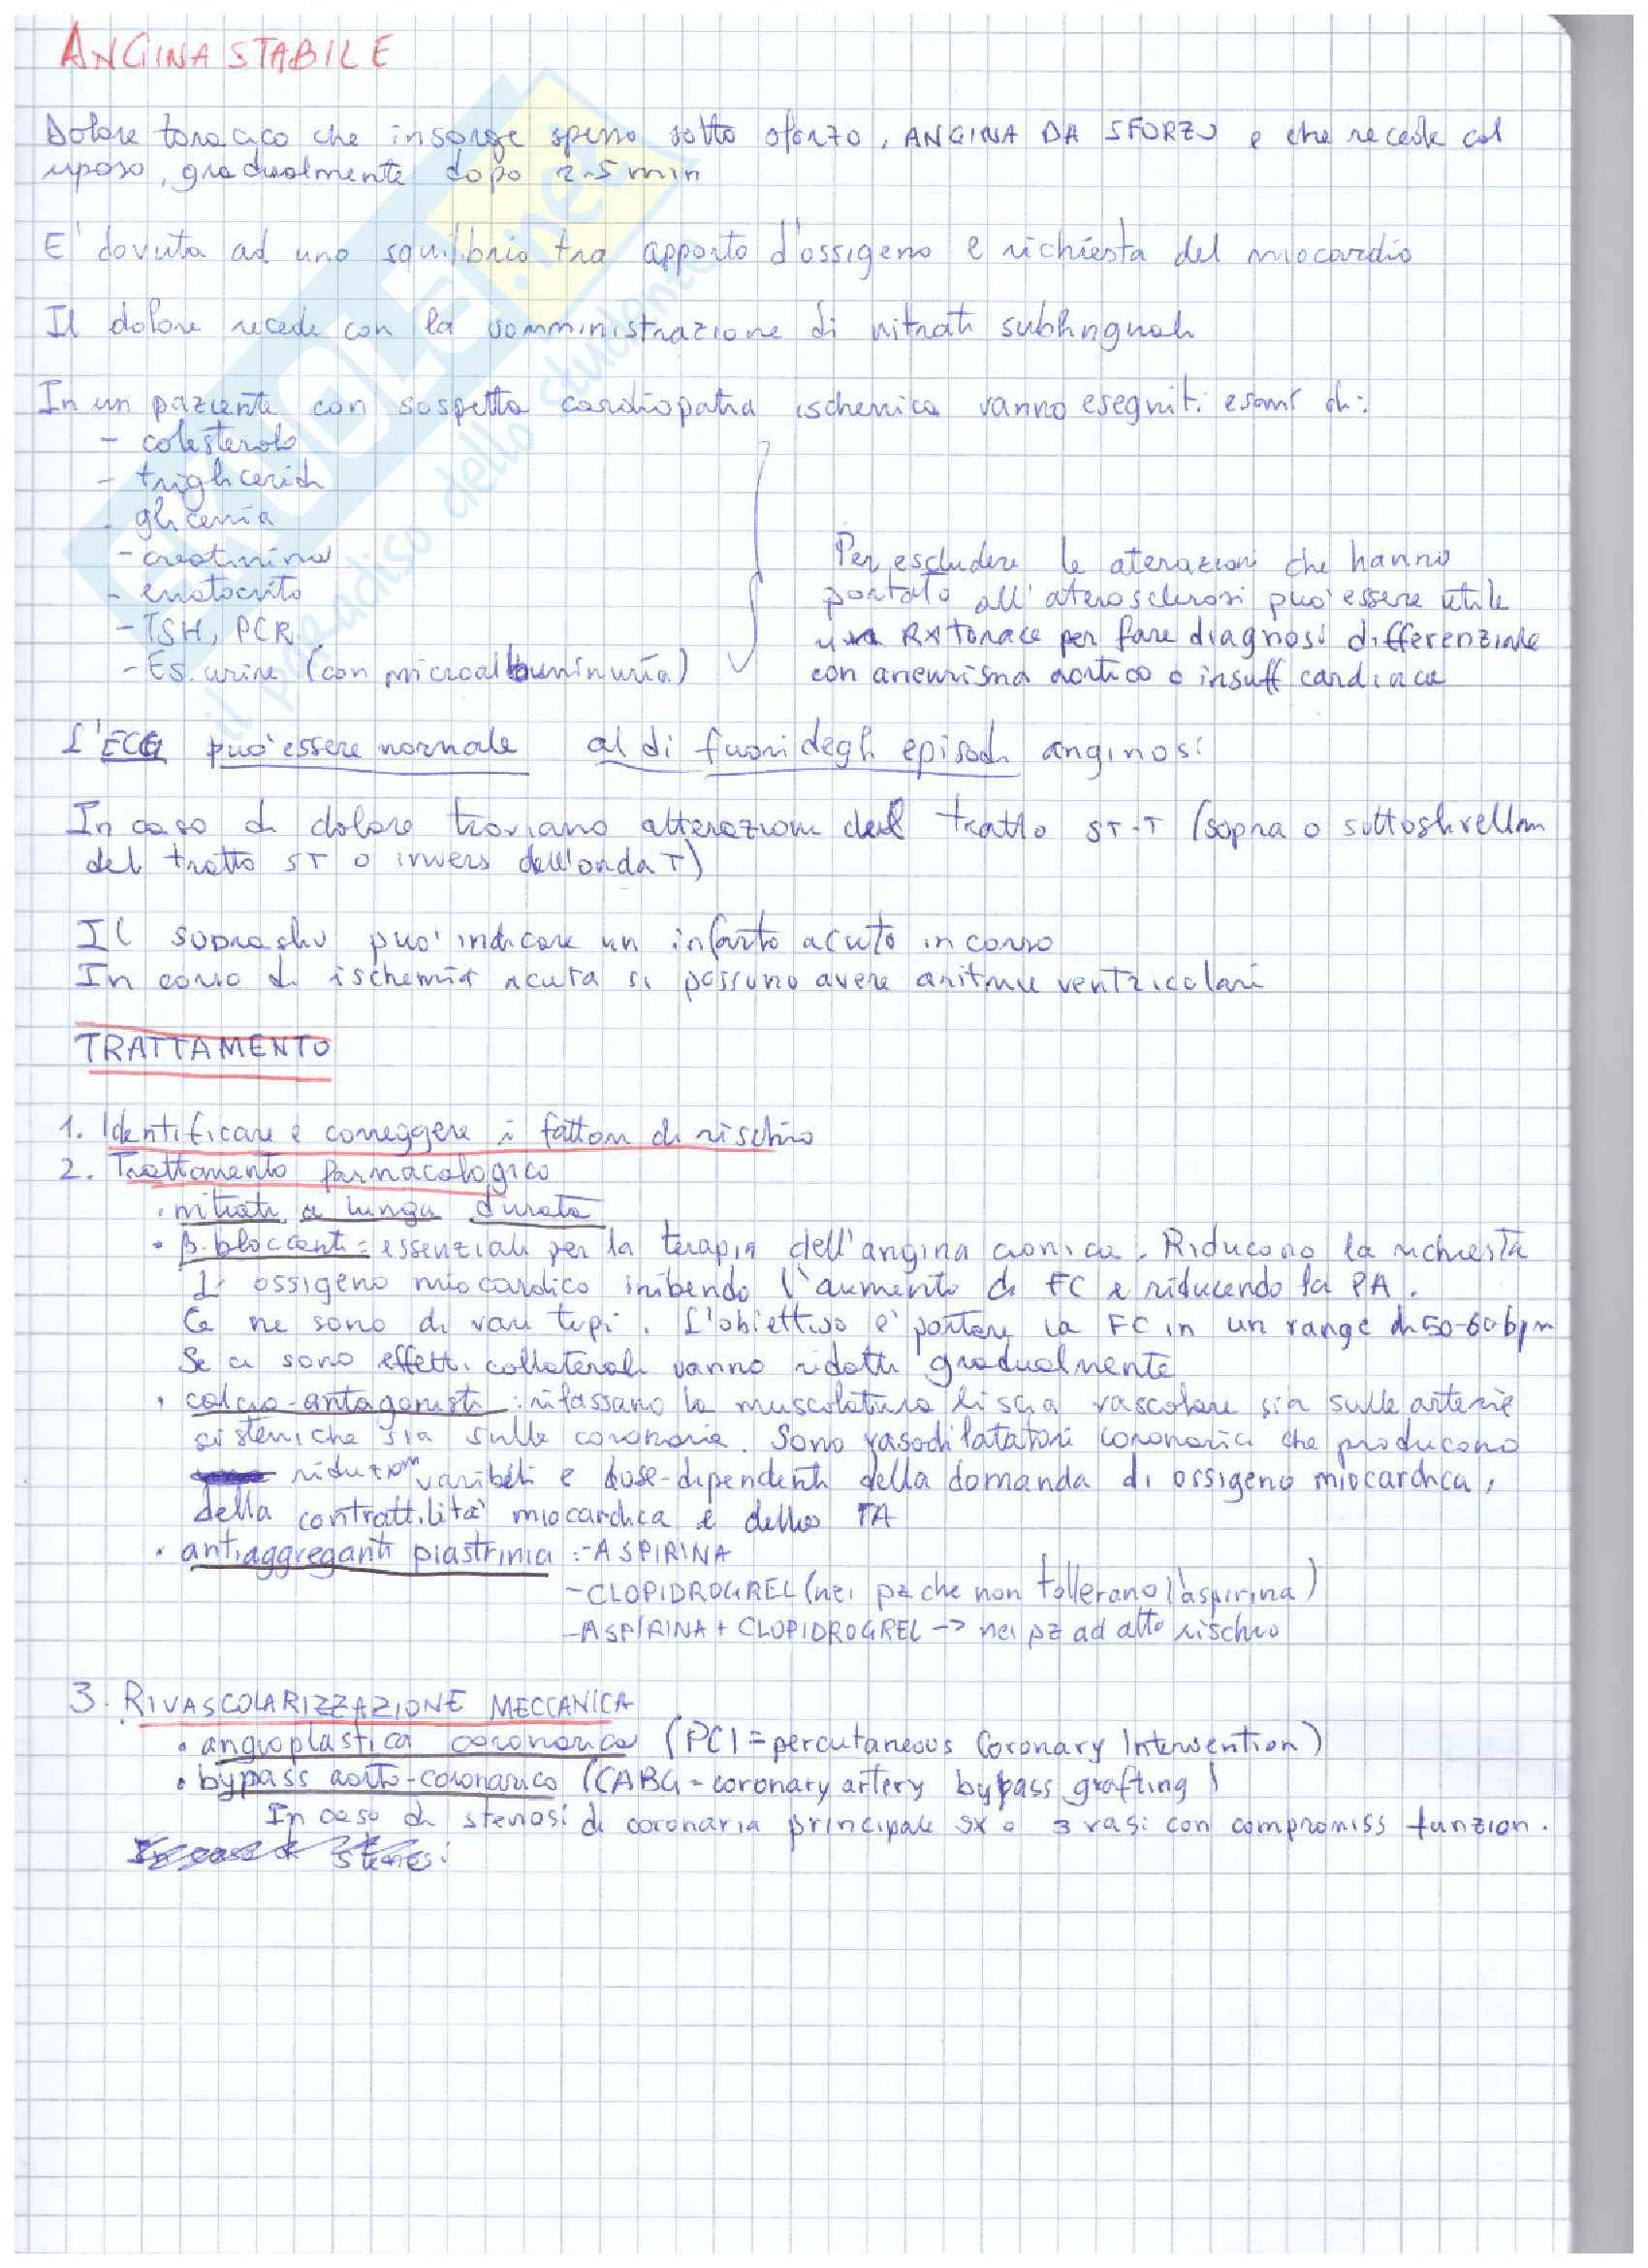 ANGINA STABILE
Dolore toracico che insorge spesso sotto sforzo, ANGINA DA SFORZO e che recede col
riposo, gradualmente dopo 2-5 min
E' dovuta ad uno squilibrio tra apporto d'ossigeno e richiesta del miocardio
Il dolore recede con la somministrazione di nitrati sublinguali
In un paziente con sospetta cardiopatia ischemica vanno eseguiti esami di:
- colesterolo
- trigliceridi
- glicemia
- creatinina
- ematocrito
- TSH, PCR
- Es. urine (con microalbuminuria)
Per escludere le aterazioni che hanno
portato all'aterosclerosi può essere utile
una RX Torace per fare diagnosi differenziale
con aneurisma aortico o insuff cardiaca
L'ECG può essere normale al di fuori degli episodi anginosi
In caso di dolore troviamo alterazioni del tratto ST-T (sopra o sottoslivellam
del tratto ST o invers dell'onda T)
Il soprasliv può indicare un infarto acuto in corso
In corso di ischemia acuta si possono avere aritmie ventricolari
TRATTAMENTO
1. Identificare e correggere i fattori di rischio
2. Trattamento farmacologico
• nitrati a lunga durata
• β-bloccanti = essenziali per la terapia dell'angina cronica. Riducono la richiesta
di ossigeno miocardico inibendo l'aumento di FC e riducendo la PA.
Ce ne sono di vari tipi. L'obiettivo è portare la FC in un range di 50-60 bpm
Se ci sono effetti collaterali vanno ridotti gradualmente
• calcio-antagonisti: rilassano la muscolatura liscia vascolare sia sulle arterie
sistemiche sia sulle coronarie. Sono vasodilatatori coronarici che producono
riduzioni varibili e dose-dipendenti della domanda di ossigeno miocardica,
della contrattilità miocardica e della PA
• antiaggreganti piastrinici: - ASPIRINA
- CLOPIDROGREL (nei pz che non tollerano l'aspirina)
- ASPIRINA + CLOPIDROGREL → nei pz ad alto rischio
3. RIVASCOLARIZZAZIONE MECCANICA
• angioplastica coronarica (PCI = percutaneous Coronary Intervention)
• bypass aorto-coronarico (CABG = coronary artery bypass grafting)
In caso di stenosi di coronaria principale sx o 3 vasi con compromiss funzion.
In caso di stenosi
SKUOLA.net
il paradiso dello studente